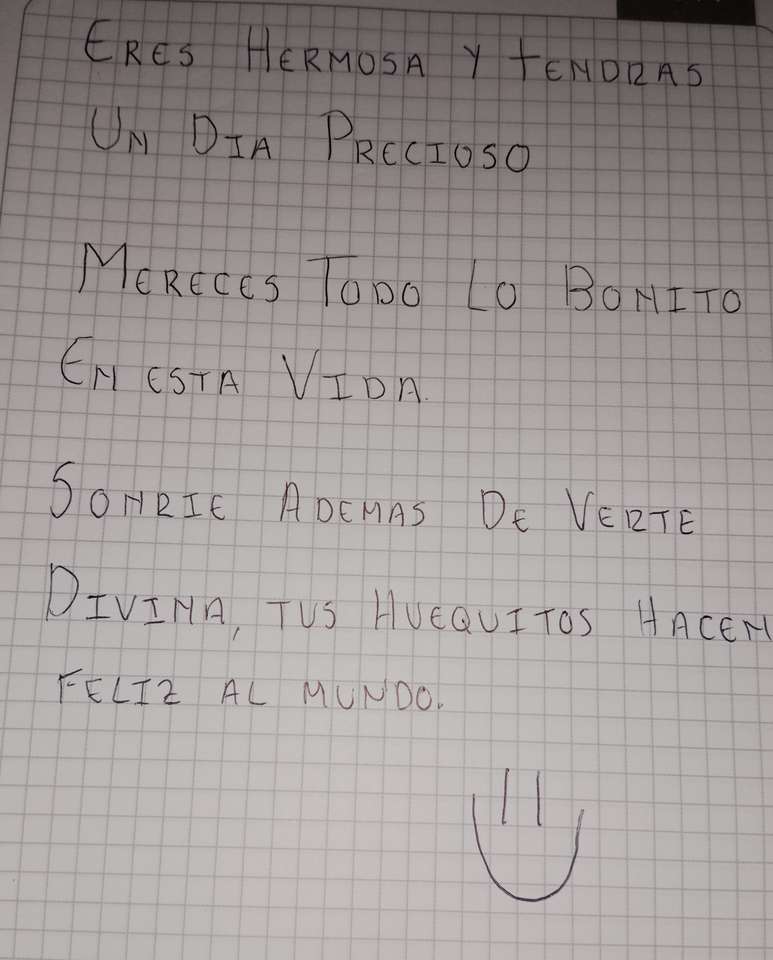 ERES HERMOSA Y TENDRAS
UN DIA PRECIOSO
MERECES TODO LO BONITO
EN ESTA VIDA.
SONRIE ADEMAS DE VERTE
DIVINA, TUS HUEQUITOS HACEN
FELIZ AL MUNDO.